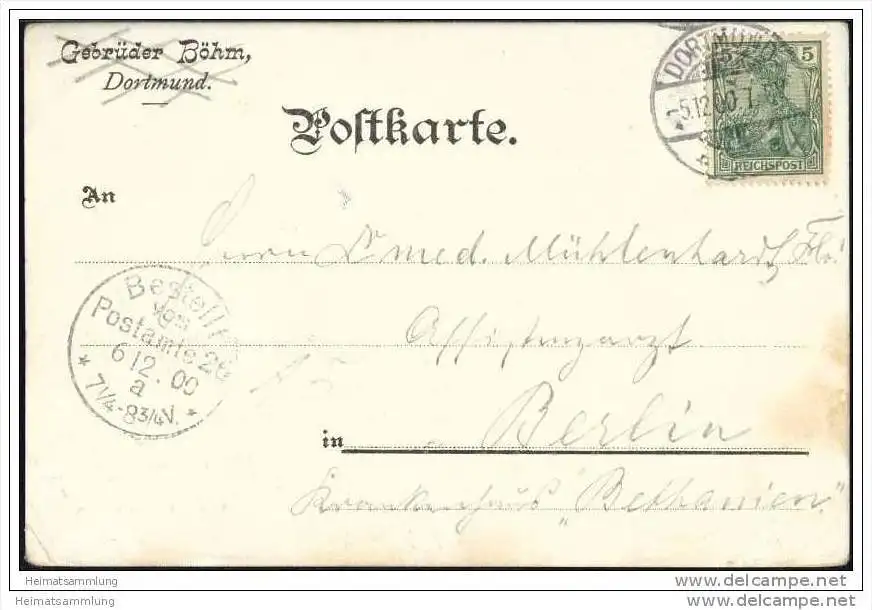 Gebrüder Böhm,
Dortmund.
Postkarte.
DORTMUND
5.12.00
5
REICHSPOST
An
Herrn Dr med. Mühlenhardt
Assistenzarzt
Bestellt
vom
Postamte 26
6 12. 00
a
* 7¼-8¾V. *
in Berlin
Krankenhaus „Bethanien"
Heimatsammlung
Heimatsammlung
www.delcampe.net
www.delcampe.net